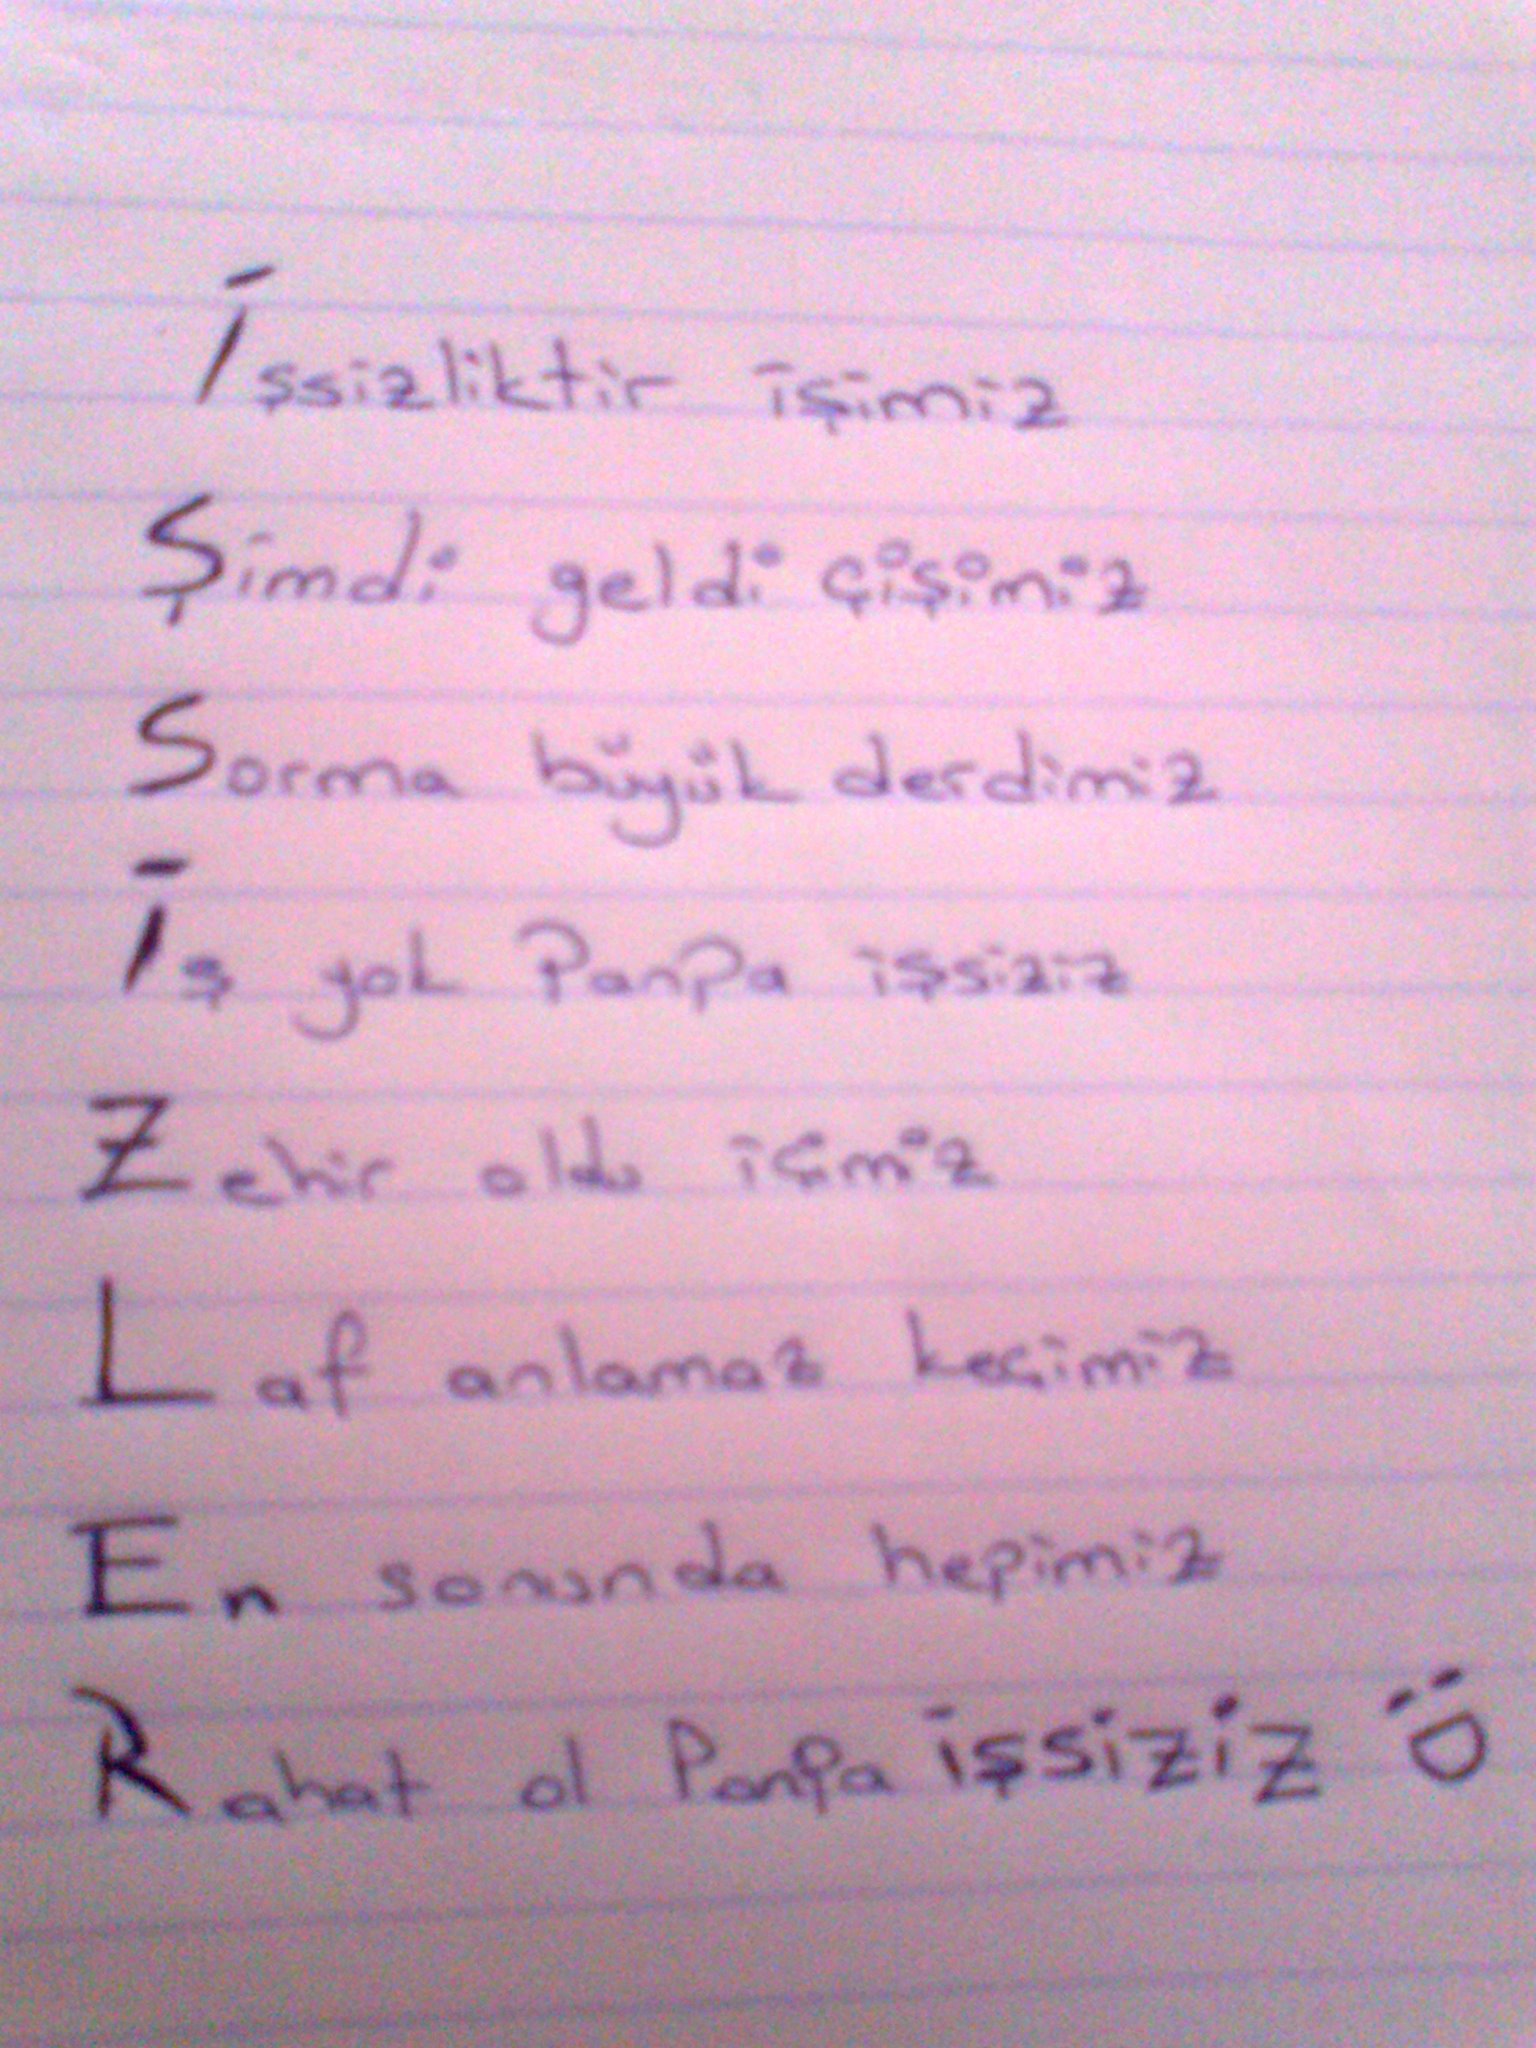 İşsizliktir işimiz
Şimdi geldi çişimiz
Sorma büyük derdimiz
İş yok Panpa işsiziz
Zehir oldu içimiz
Laf anlamaz keçimiz
En sonunda hepimiz
Rahat ol Panpa işsiziz :D